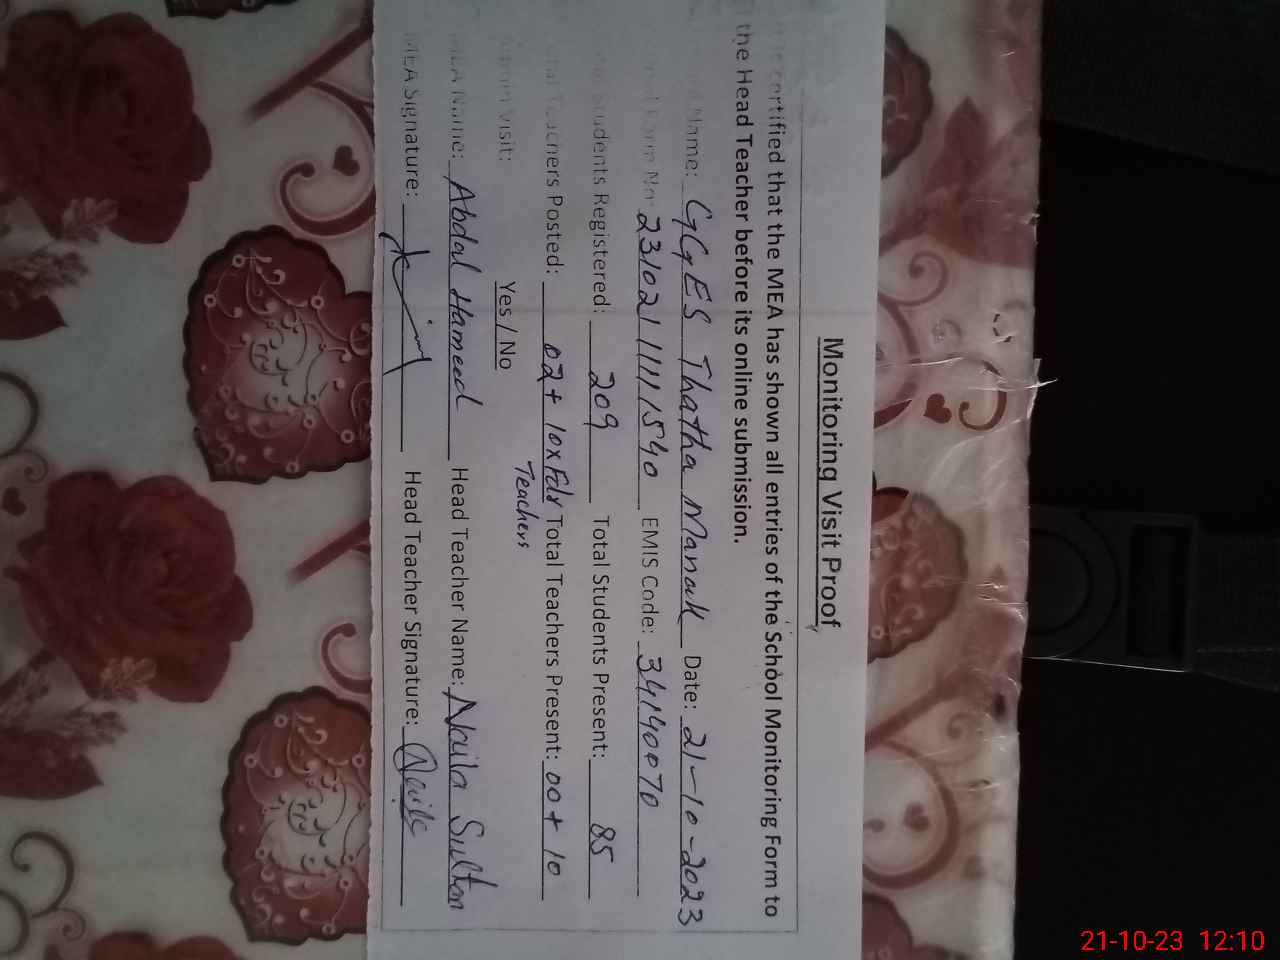 Monitoring Visit Proof
certified that the MEA has shown all entries of the School Monitoring Form to
the Head Teacher before its online submission.
Name: GGES Thatha Manak Date: 21-10-2023
Form No: EMIS Code: 34140070
Students Registered: 209 Total Students Present: 85
Total Teachers Posted: 02 + 10x Total Teachers Present: 00 + 10
Teachers
Visit: Yes / No
MEA Name: Abdal Hameed Head Teacher Name: Naila Sultan
MEA Signature: Head Teacher Signature: Naila
21-10-23 12:10